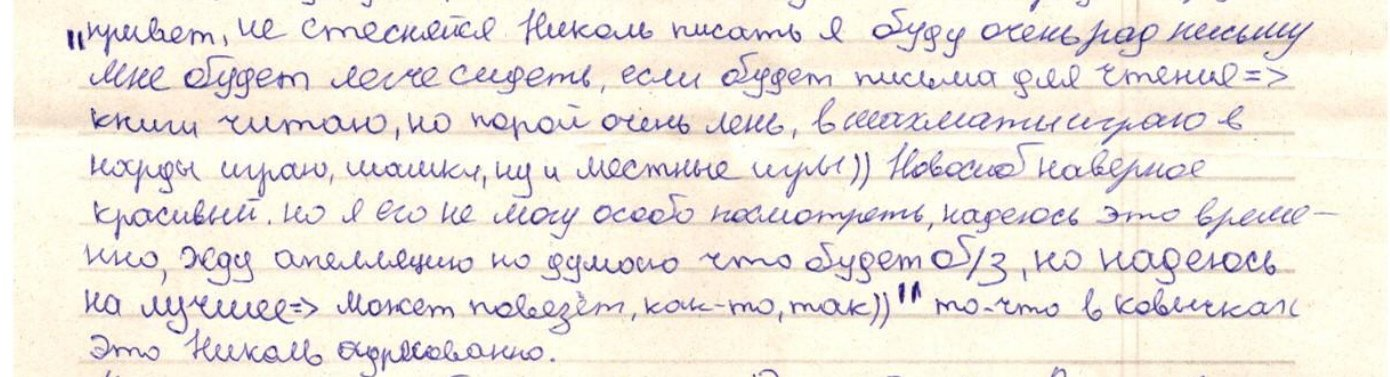 "привет, не стесняйся Николь писать я буду очень рад письму
мне будет легче сидеть, если будет письма для чтения=>
книги читаю, но порой очень лень, в шахматы играю в
нарды играю, шашки, ну и местные игры)) Новосиб наверное
красивый. но я его не могу особо посмотреть, надеюсь это време-
нно, жду апелляцию но думаю что будет б/з, но надеюсь
на лучшее=> может повезёт, как-то, так))" то-что в ковычках
это Николь адресованно.